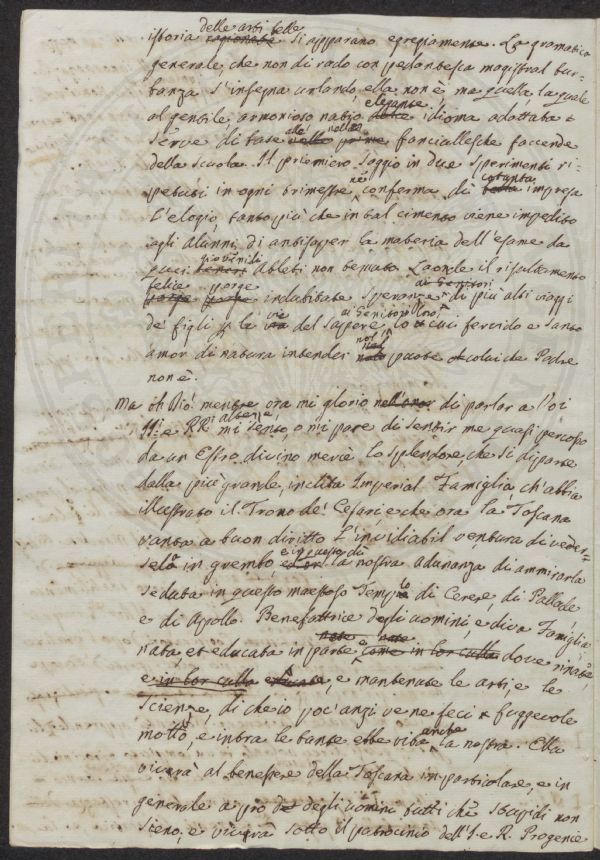 delle arti belle
istoria ragionate si apparano egregiamente. La gramatica
generale, che non di rado con pedantesca magistral bur-
banza s'insegna urlando, ella non è, ma quella, la quale
al gentile armonioso natìo elegante idioma adattata
serve di base alle nelle prime fanciullesche faccende
della scuola. Il primiero saggio in due sperimenti ri-
petuti in ogni trimestre ne conferma di cotanta impresa
l'elogio, tanto più che in tal cimento viene impedito
agli Alunni di antisaper la materia dell'esame da
giovinili
Atleti non tentato. Laonde il risultamento
felice porge indubitate speranze ai Genitori di più alti viaggi
de' figli per la via del sapere, lo cui fervido e santo
amor di natura intender nol puote colui che Padre
non è.
Ma oh Dio! mentre ora mi glorio di parlar a l'oi
II. e RR. altezze mi sento, o mi pare di sentir me quasi percosso
da un Estro divino mercè lo splendore, che si diparte
dalla più grande, inclita Imperial Famiglia, ch'abbia
illustrato il Trono de' Cesari e che ora la Toscana
vanta a buon diritto l'invidiabil ventura di veder-
sela in grembo, e in questo dì la nostra adunanza di ammirarla
seduta in questo maestoso Tempio di Cerere, di Pallade
e di Apollo. Benefattrice degli uomini, e diva Famiglia
nata, et educata in parte come in lor culla dove
e in lor culla, e mantenute le arti, e le
Scienze, di che io poc'anzi ve ne feci fuggevole
motto, e intra le tante ebbe vita anche la nostra. Ella
vivrà al benessere della Toscana in particolare, e in
generale a pro degli uomini tutti che stupidi non
sieno, e vivrà sotto il patrocinio dell'I. e R. Progenie